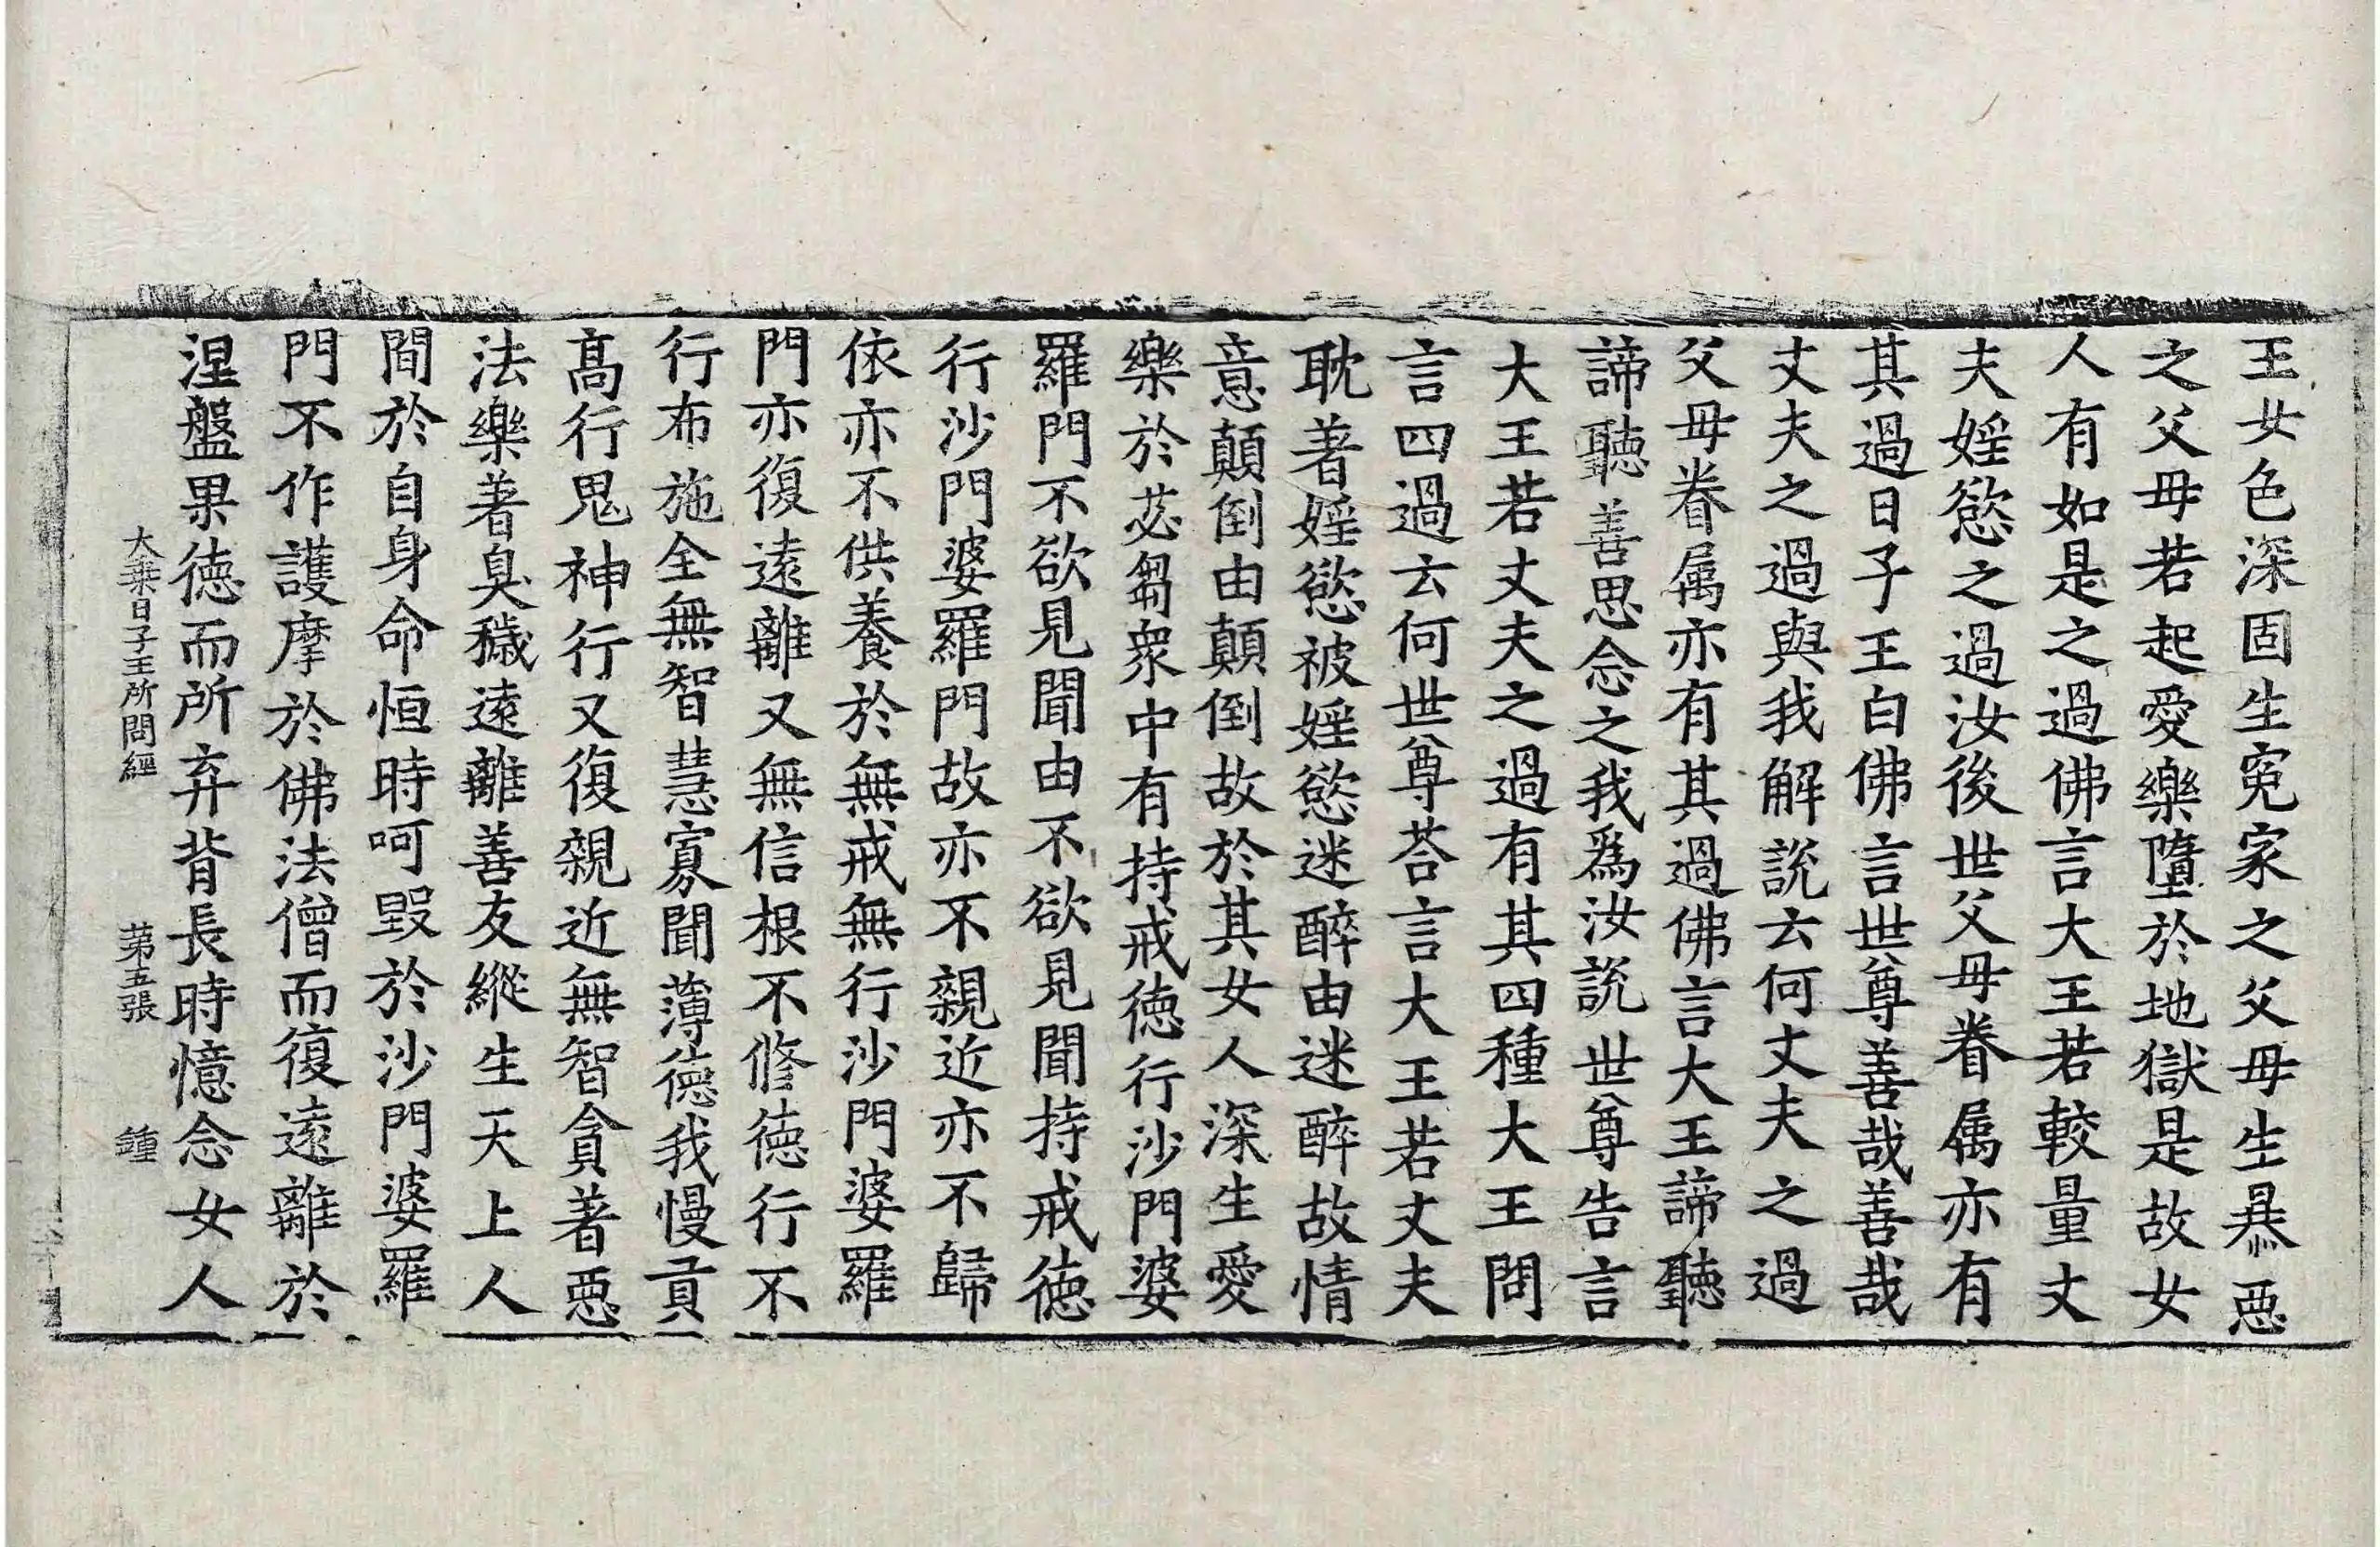 王女色深固生寃家之父母生㬥惡
之父母若起愛樂墮於地獄是故女
人有如是之過佛言大王若較量丈
夫婬慾之過汝後世父母眷属亦有
其過日子王白佛言世尊善哉善哉
丈夫之過與我解說云何丈夫之過
父母眷属亦有其過佛言大王諦聽
諦聽善思念之我爲汝說世尊告言
大王若丈夫之過有其四種大王問
言四過云何世尊荅言大王若丈夫
耽著婬慾被婬慾迷醉由迷醉故情
意顛倒由顛倒故於其女人深生愛
樂於苾芻衆中有持戒德行沙門婆
羅門不欲見聞由不欲見聞持戒德
行沙門婆羅門故亦不親近亦不歸
依亦不供養於無戒無行沙門婆羅
門亦復遠離又無信根不修德行不
行布施全無智慧寡聞薄德我慢貢
髙行鬼神行又復親近無智貪著惡
法樂著臭穢遠離善友縱生天上人
間於自身命恒時呵毀於沙門婆羅
門不作護摩於佛法僧而復遠離於
涅盤果德而所弃背長時憶念女人
大乗日子王所問經 苐五張 鍾